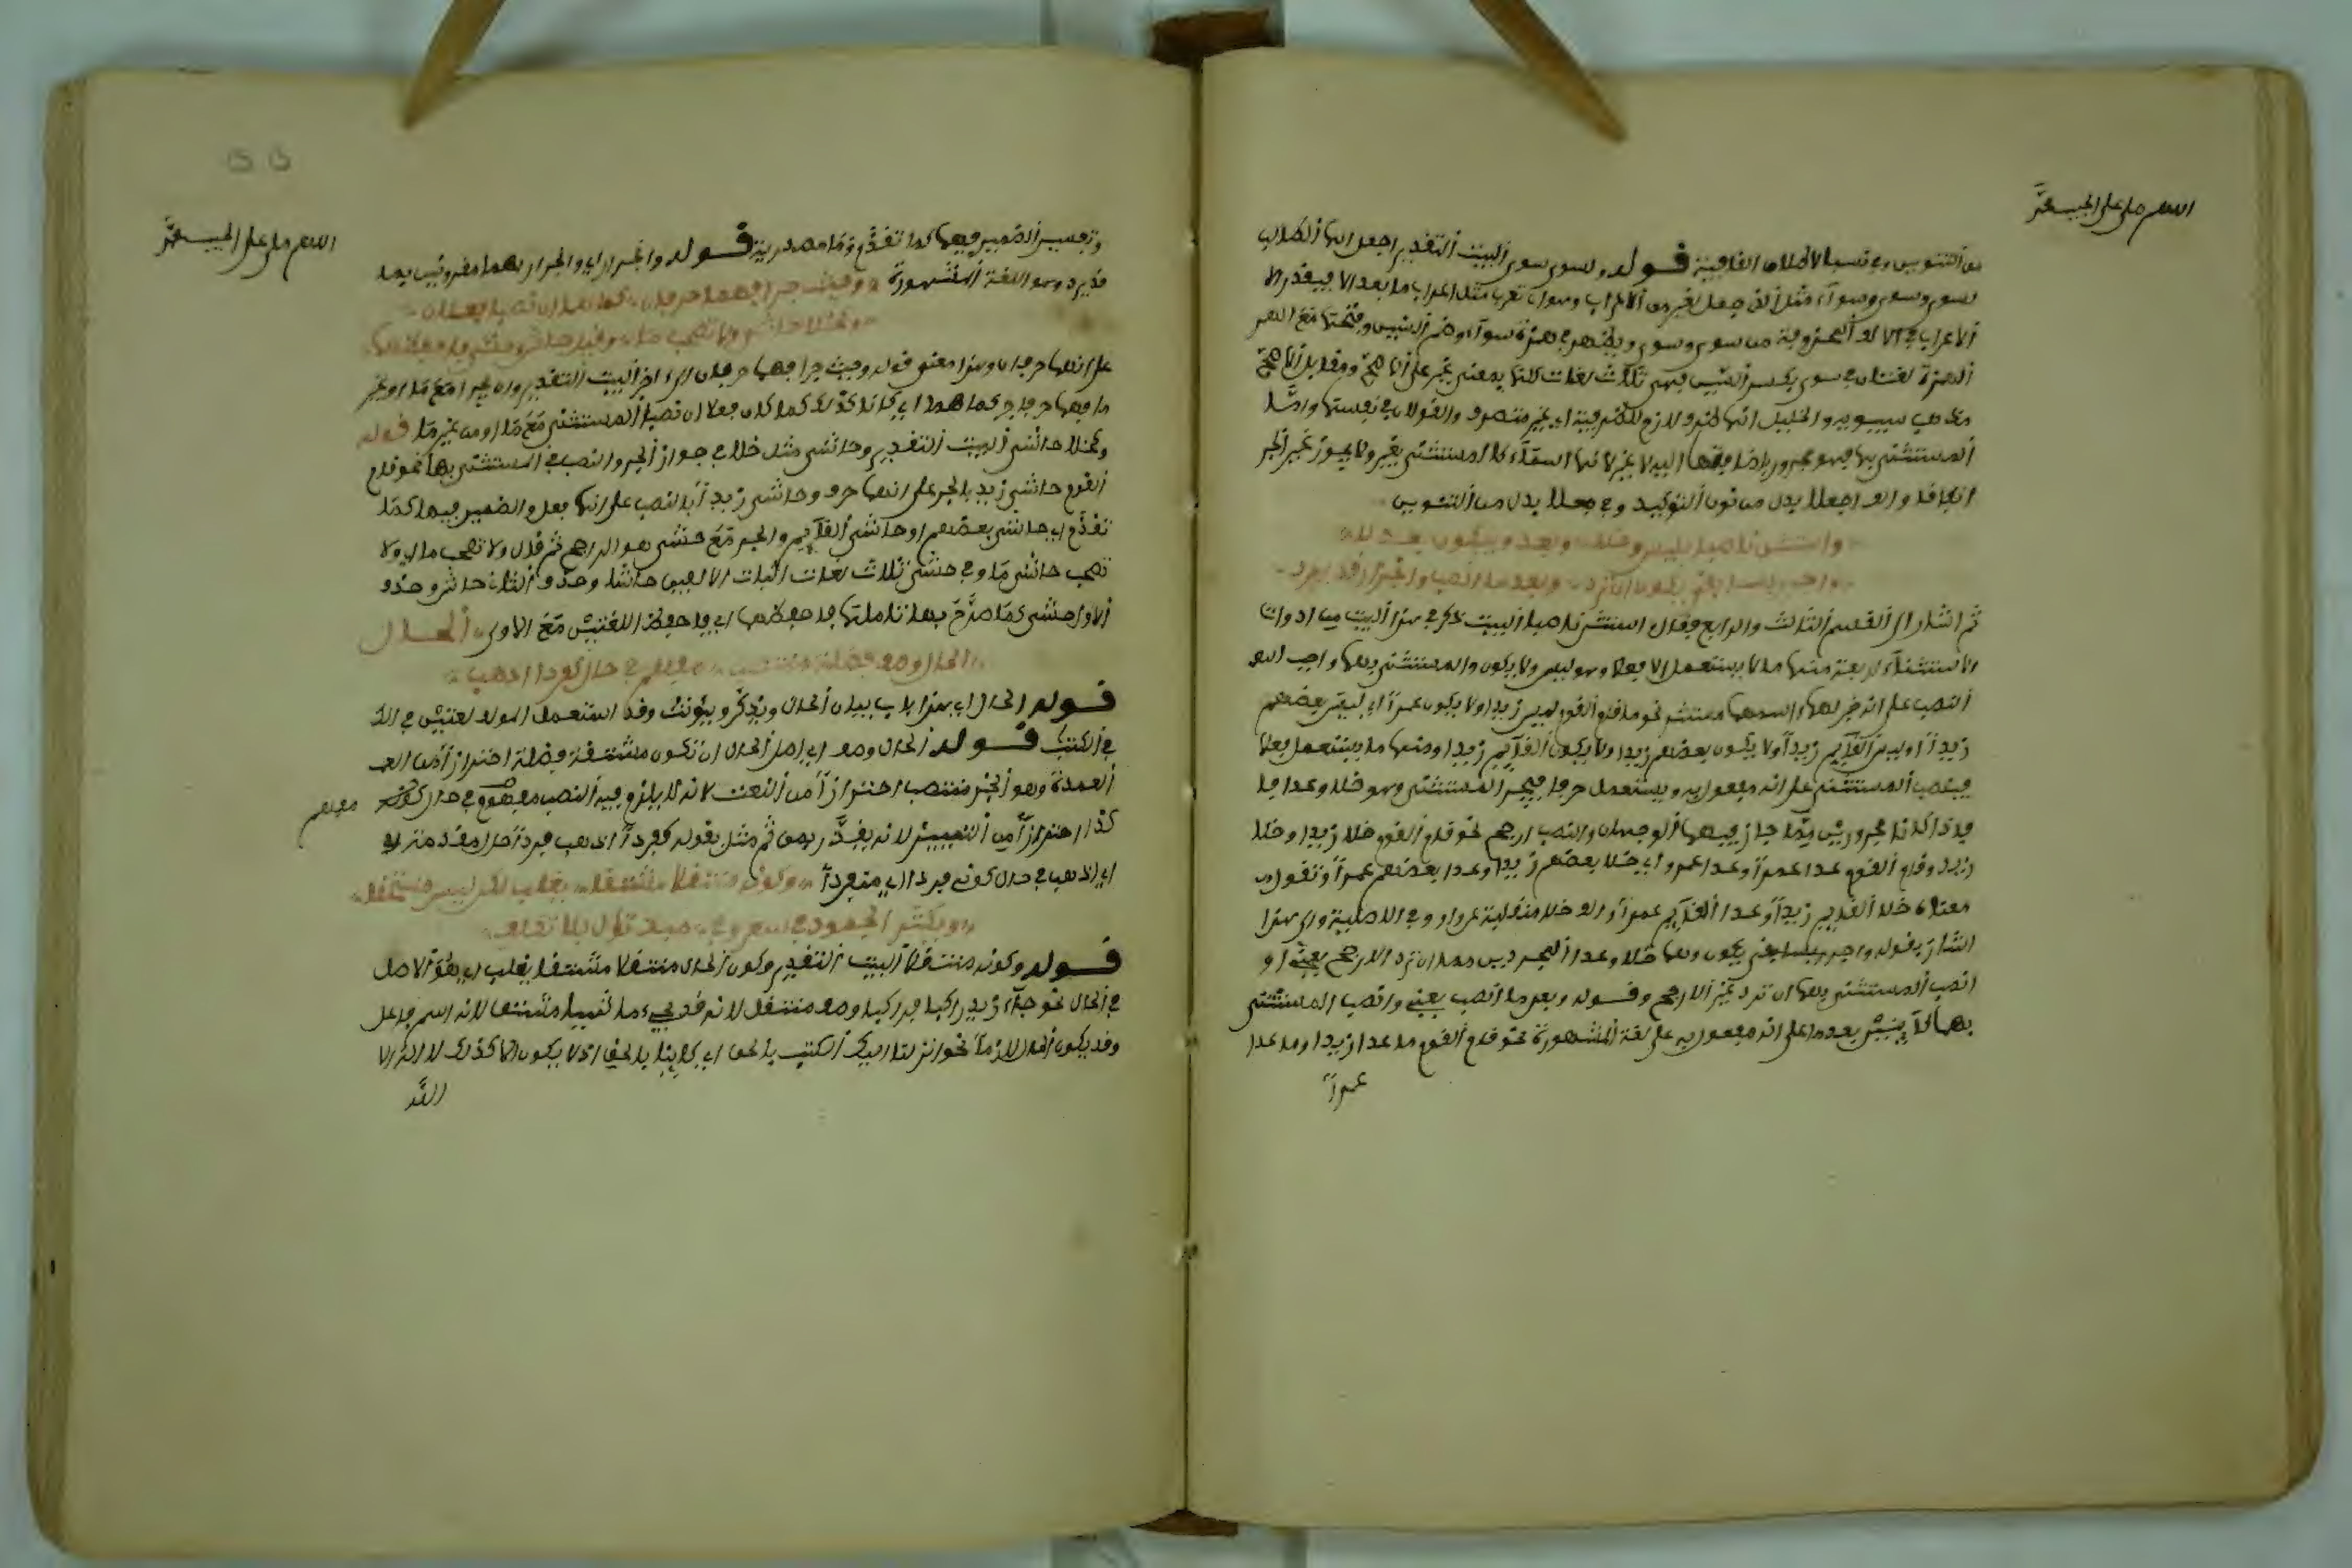 اللهم صل على الحبيب محمد
من التنوين وفي نسبا لاطلاق القافية قوله ولسوى سوى البيت التقدير اجعل ايها الطالب
لسوى وسوى وسواء مثل الذي جعل لغير من الاعراب وسوى تعرب مثل اعراب ما بعد الا فيقدر
الاعراب في الالف من سوى وسوى ويظهر في همزة سواء وضم السين وفتحها مع
لغتان في سوى بكسر السين فهي ثلاث لغات كلها بمعنى غير على الاصح ومقابل الاصح
مذهب سيبويه والخليل انها ظرف لازم للظرفية اي غير متصرف والقولان في
المستثنى بها فهو مجرور باضافتها اليه لا غير لانها اسماء كالمستثنى بغير ولا يجوز غير الجر
والف اجعلا بدل من نون التوكيد وفي جعلا بدل من التنوين
واستثن ناصبا بليس وخلا وبعدا وبيكون بعد لا
واجرر بسابقي يكون ان ترد وبعد ما انصب وانجرار قد يرد
ثم اشار الى القسم الثالث والرابع فقال استثن ناصبا البيت ذكر في هذا البيت من ادوات
الاستثناء اربعة منها ما لا يستعمل الا فعلا وهو ليس ولا يكون والمستثنى بهما واجب
النصب على انه خبر لهما واسمهما مستتر نحو قام القوم ليس زيدا ولا يكون عمرا اي ليس بعضهم
زيدا او ليس القايم زيدا ولا يكون بعضهم زيدا ولا يكون القايم زيدا ومنها ما يستعمل فعلا
فينصب المستثنى على انه مفعول به ويستعمل حرفا فيجر المستثنى وهو خلا وعدا
فاذا كانا مجرورين جاز فيهما الوجهان والنصب ارجح نحو قام القوم خلا زيدا وخلا
زيد وقام القوم عدا عمرا وعدا عمرو اي خلا بعضهم زيدا وعدا بعضهم عمرا وتقول
خلا القايم زيدا وعدا القايم عمرا والف خلا منقلبة عن واو والى هذا
اشار بقوله واجرر بسابقي يكون وهما خلا وعدا ان ترد الارجح يعني او
انصب المستثنى بهما ان ترد غير الارجح وقوله وبعد ما انصب يعني وانصب المستثنى
بعد ما على انه مفعول به على لغة المشهورة نحو قام القوم ما عدا زيدا وما عدا
عمرا
اللهم صل على الحبيب محمد
وتفسير الضمير فيهما كما تقدم وما مصدرية قوله وانجرار اي والجرار بهما مقرونين بما
قد يرد وهو اللغة المشهورة وحيث جرا فهما حرفان كما هما ان نصبا فعلان
وكخلا حاشى ولا تصحب ما وقيل حاش وحشى فاحفظهما
على انهما حرفان وهذا معنى قوله وحيث جرا فهما حرفان الى اخر البيت التقدير وان جرا مع ما او غير
ما فهما حرفا جر كما هما اي كانا كذلك كما كان فعلا ان نصبا المستثنى مع ما او من غير ما قوله
وكخلا حاشى البيت التقدير وحاشى مثل خلا في جواز الجر والنصب في المستثنى بها نحو قام
القوم حاشى زيد بالجر على انها حرف وحاشى زيدا بالنصب على انها فعل والضمير فيها كما
تقدم اي حاشى بعضهم او حاشى القايم والجر مع حشى هو الراجح ثم قال ولا تصحب ما اي ولا
تصحب حاشى ما وفي حشى ثلاث لغات اثبات الالفين حاشا وحذف الثانية حاش وحذف
الاولى حشى كما صرح بها فاحفظهما اي فاحفظ اللغتين مع الاولى الحال
الحال وصف فضلة منتصب مفهم في حال كفردا اذهب
قوله الحال اي هذا باب بيان الحال ويذكر ويونث وقد استعمل المولف لغتين في
الكتب قوله الحال وصف اي اصل الحال ان تكون مشتقة فضلة احترازا من
العمدة وهو الخبر منتصب احترازا من النعت لانه لا يلزم فيه النصب مفهم في حال
كذا احترازا من التمييز لانه يقدر بمن ثم مثل بقوله كفردا اذهب
اي اذهب في حال كوني فردا اي منفردا وكونه منتقلا مشتقا يغلب لكن ليس مستحقا
ويكثر الجمود في سعر وفي مبدي تأول بلا تكلف
قوله وكونه منتقلا البيت التقدير وكون الحال منتقلا مشتقا يغلب اي يقع الاصل
في الحال نحو جاء زيد راكبا فراكبا وصف منتقل لانه قد يجيء ماشيا مشتقا لانه اسم فاعل
وقد يكون الحال لازما نحو انزلنا اليك الكتب بالحق اي كاينا بالحق اذ لا يكون الا كذلك